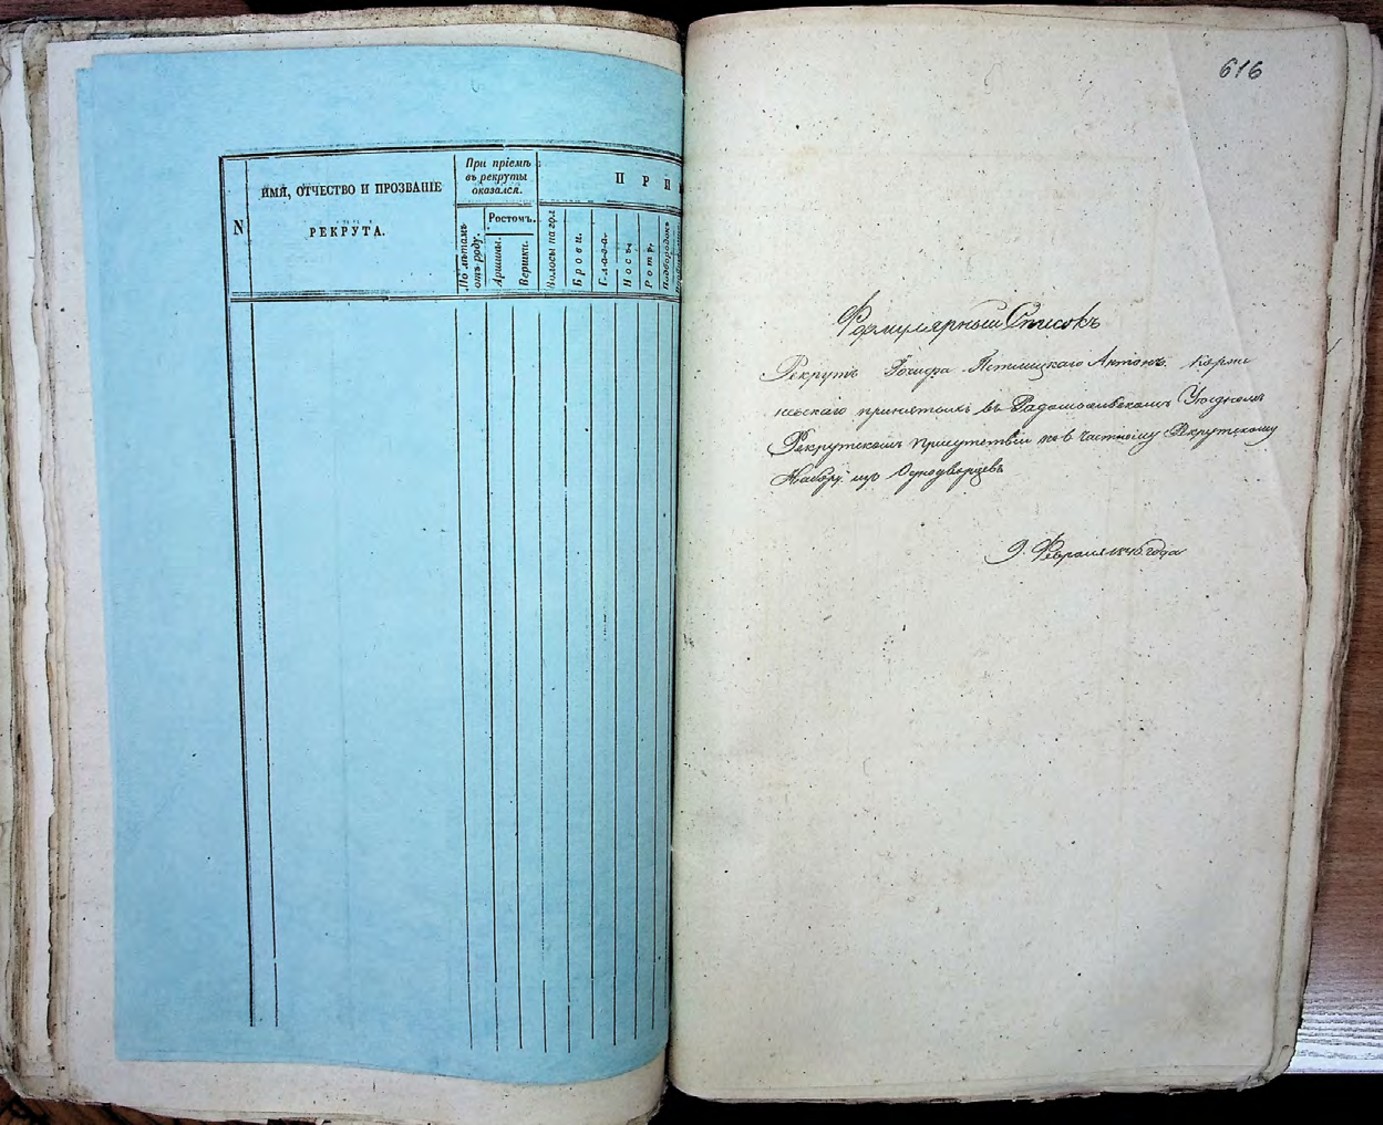 N
ИМЯ, ОТЧЕСТВО И ПРОЗВАНІЕ
РЕКРУТА.
При пріемѣ
въ рекруты
оказался.
По лѣтамъ
отъ роду.
Ростомъ.
Аршины.
Вершки.
ПРИ
Волосы на гол
Брови.
Глаза.
Носъ,
Ротъ,
Подбородокъ
616
Формулярный Списокъ
Рекрутъ Антонъ
принятый въ Радомысльскомъ Уѣздномъ
Рекрутскомъ Присутствіи по 6 частному Рекрутскому
Набору изъ Однодворцевъ
9. Февраля 1846 года